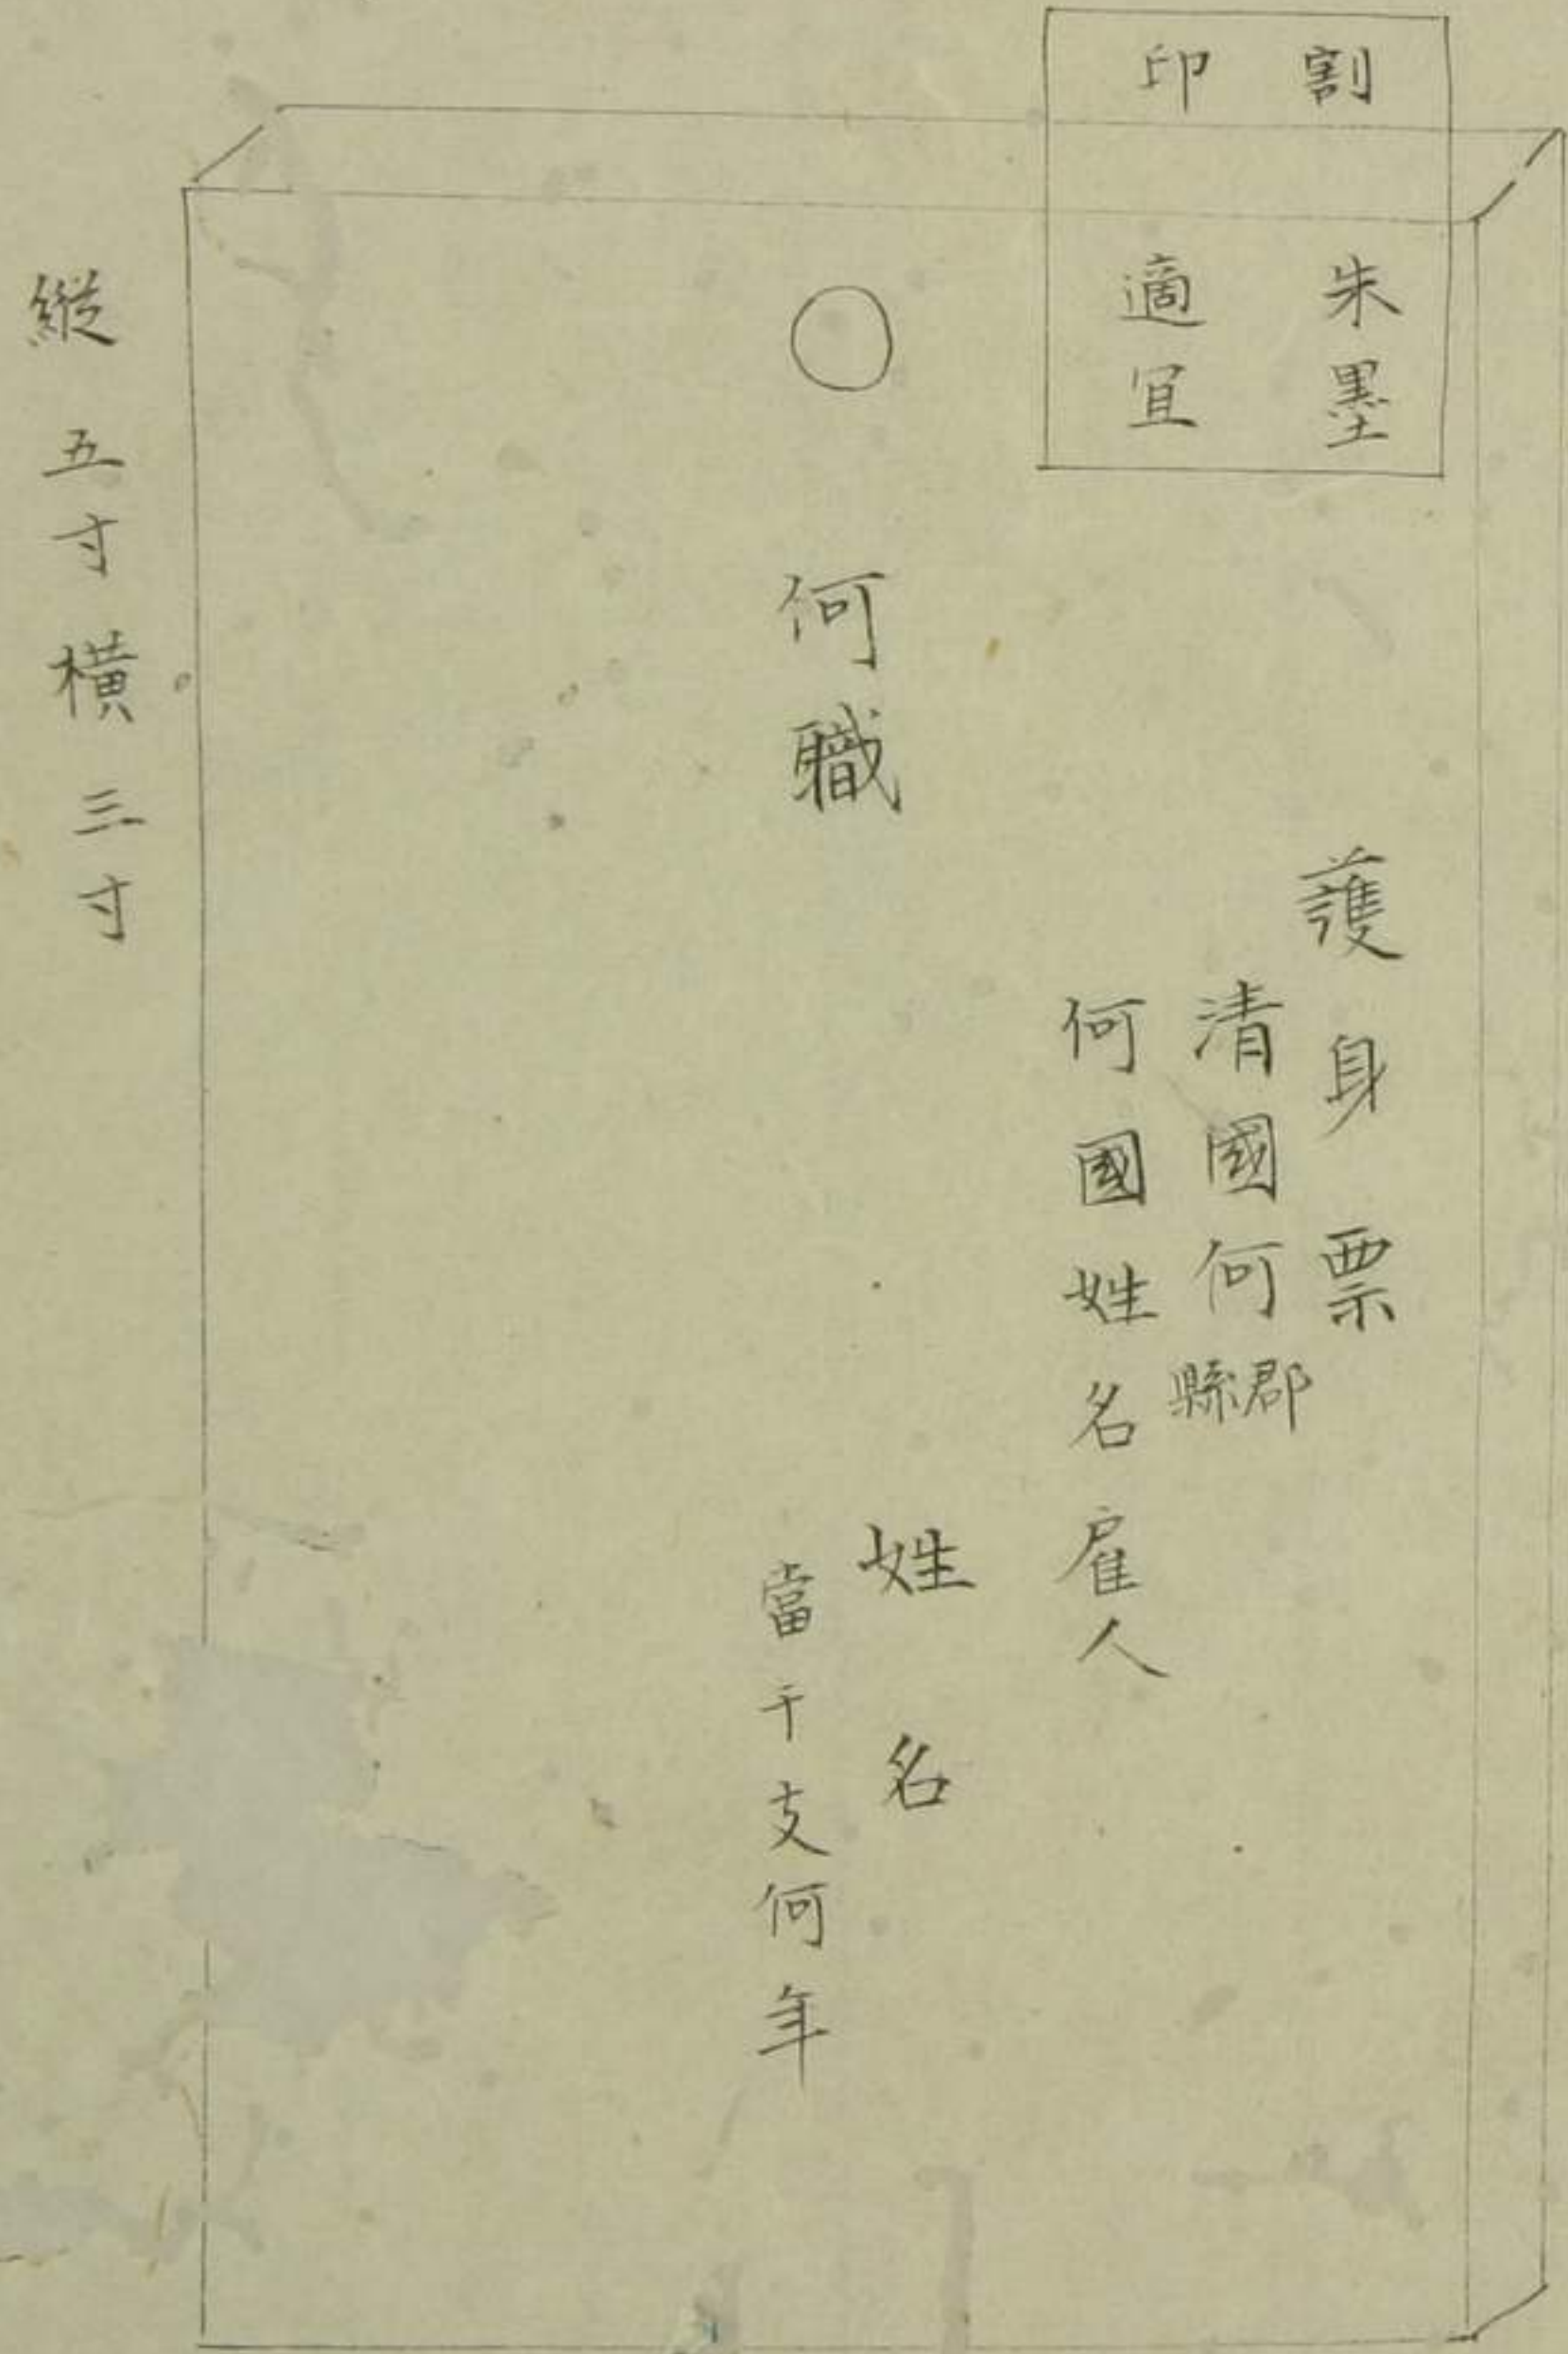 割印
朱墨
適宜
護身票
清國何郡縣
何國姓名雇人
何職
姓名
當干支何年
縱五寸橫三寸